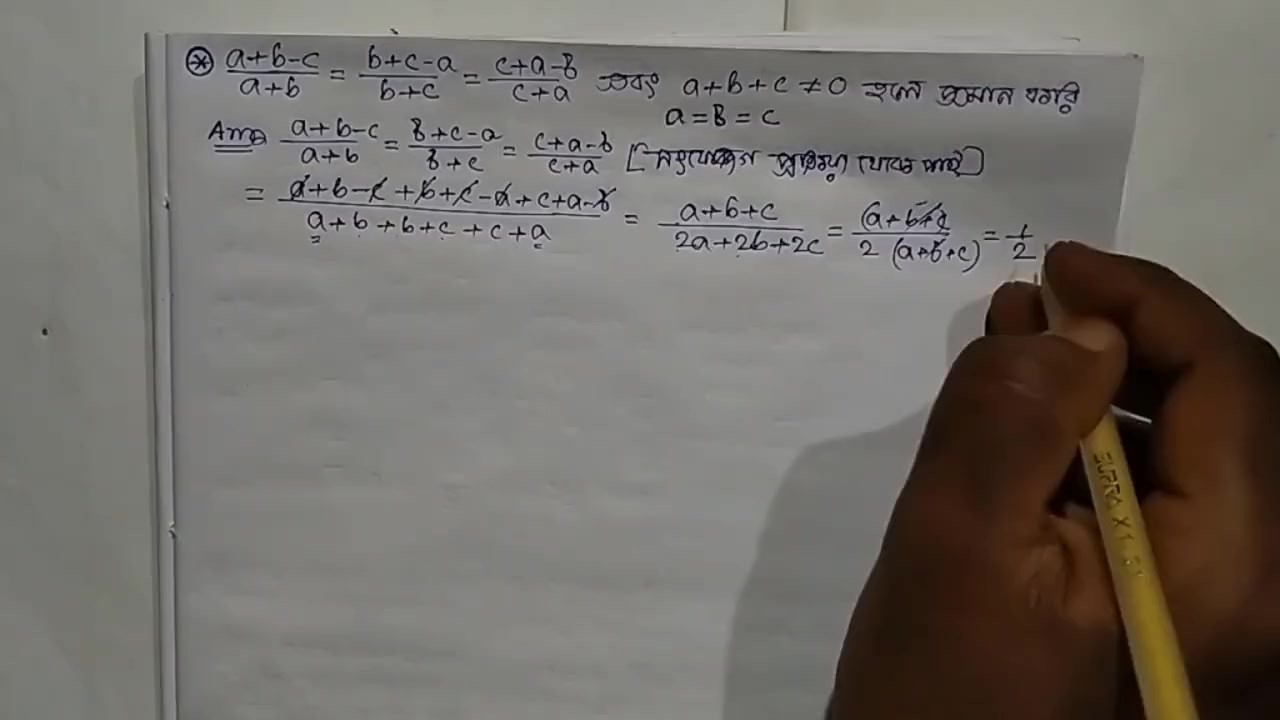 ⊛ (a+b-c)/(a+b) = (b+c-a)/(b+c) = (c+a-b)/(c+a) এবং a+b+c ≠ 0 হলে প্রমাণ করি
a = b = c
Ans (a+b-c)/(a+b) = (b+c-a)/(b+c) = (c+a-b)/(c+a) [সংযোজন প্রক্রিয়া থেকে পাই]
= (a+b-c+b+c-a+c+a-b)/(a+b+b+c+c+a) = (a+b+c)/(2a+2b+2c) = (a+b+c)/2(a+b+c) = 1/2
SUPRA X1